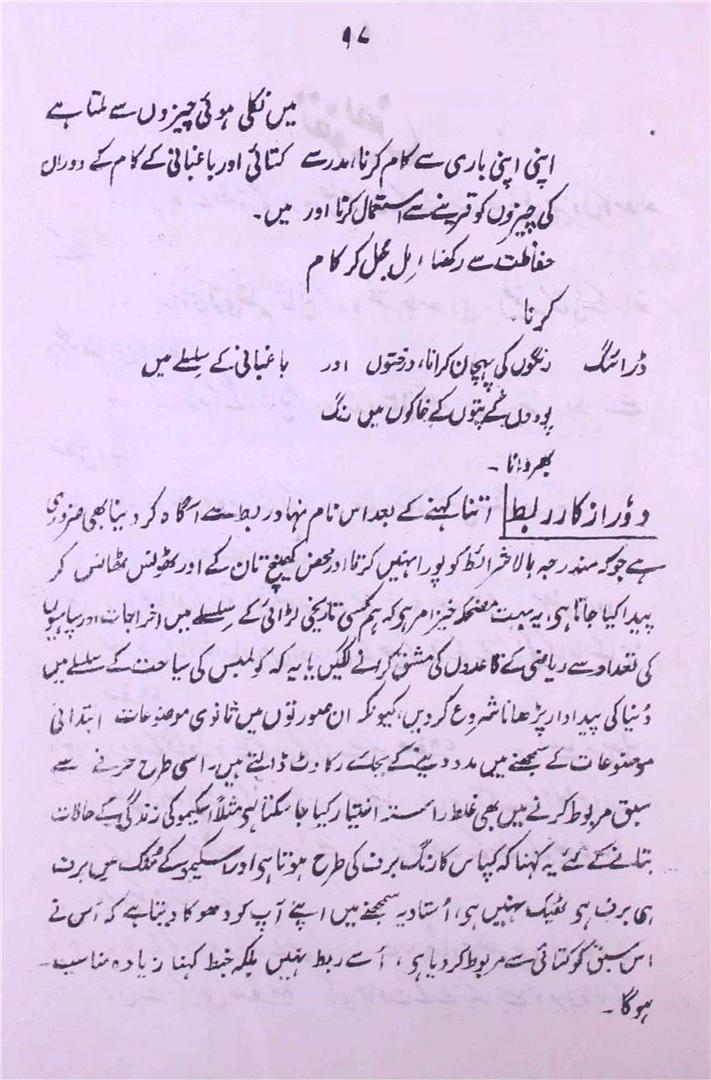 ۹۷
میں نکلی ہوئی چیزوں سے ملتا ہے
اپنی اپنی باری سے کام کرنا، مدرسے کتائی اور باغبانی کے کام کے دوران
کی چیزوں کو قرینے سے استعمال کرنا اور میں۔
حفاظت سے رکھنا، مل جل کر کام
کرنا۔
ڈرائنگ رنگوں کی پہچان کرانا، درختوں اور باغبانی کے سلسلے میں
پودوں کے پتوں کے خاکوں میں رنگ
بھروانا۔
دوراز کار ربط اتنا کہنے کے بعد اس نام نہاد ربط سے آگاہ کر دینا بھی ضروری
ہے جو کہ مندرجہ بالا شرائط کو پورا نہیں کرتا اور محض کھینچ تان کے اور ٹھونس ٹھانس کر
پیدا کیا جاتا ہی، یہ بہت مضحکہ خیز امر ہو کہ ہم کسی تاریخی لڑائی کے سلسلے میں اخراجات اور سپاہیوں
کی تعداد سے ریاضی کے قاعدوں کی مشق کرانے لگیں یا یہ کہ کولمبس کی سیاحت کے سلسلے میں
دُنیا کی پیداوار پڑھانا شروع کر دیں، کیونکہ ان صورتوں میں ثانوی موضوعات ابتدائی
موضوعات کے سمجھنے میں مدد دینے کے بجائے رکاوٹ ڈالتے ہیں۔ اسی طرح حرفے سے
سبق مربوط کرنے میں بھی غلط راستہ اختیار کیا جا سکتا ہی مثلاً اسکیمو کی زندگی کے حالات
بتانے کے لئے یہ کہنا کہ کپاس کا رنگ برف کی طرح ہوتا ہی اور اسکیمو کے مُلک میں برف
ہی برف ہو ٹھیک نہیں ہی، اُستاد یہ سمجھنے میں اپنے آپ کو دھوکا دیتا ہے کہ اُس نے
اس سبق کو کتائی سے مربوط کر دیا ہی، اُسے ربط نہیں بلکہ خبط کہنا زیادہ مناسب
ہوگا۔